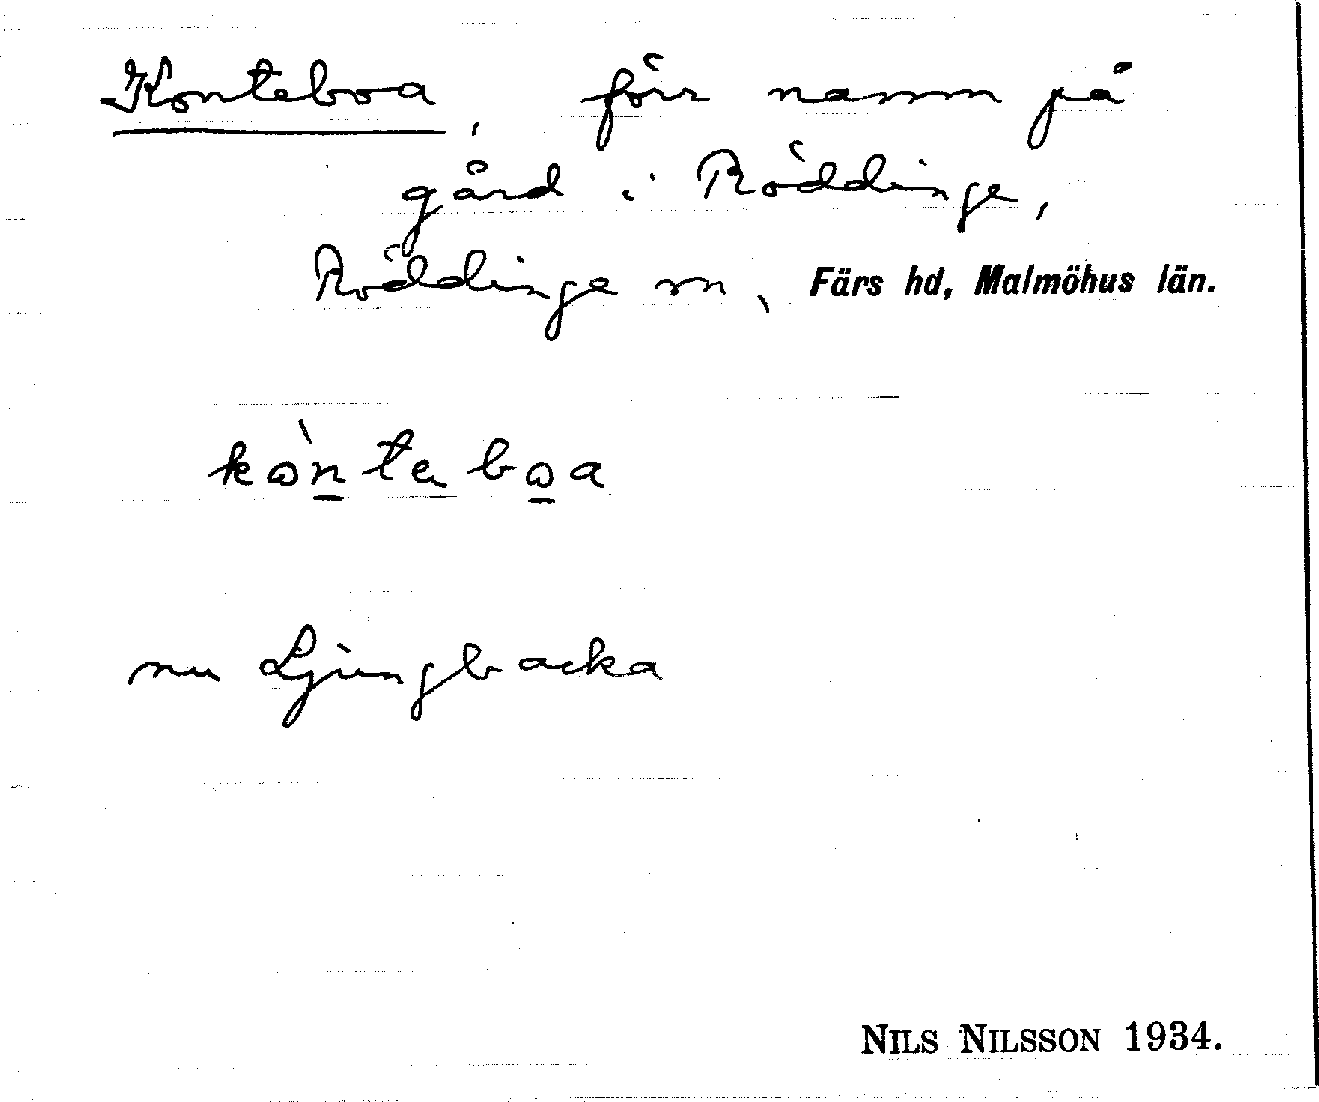 Konteboa, förr namn på
gård i Röddinge,
Röddinge sn, Färs hd, Malmöhus län.
kònteboa
nu Ljungbacka
NILS NILSSON 1934.